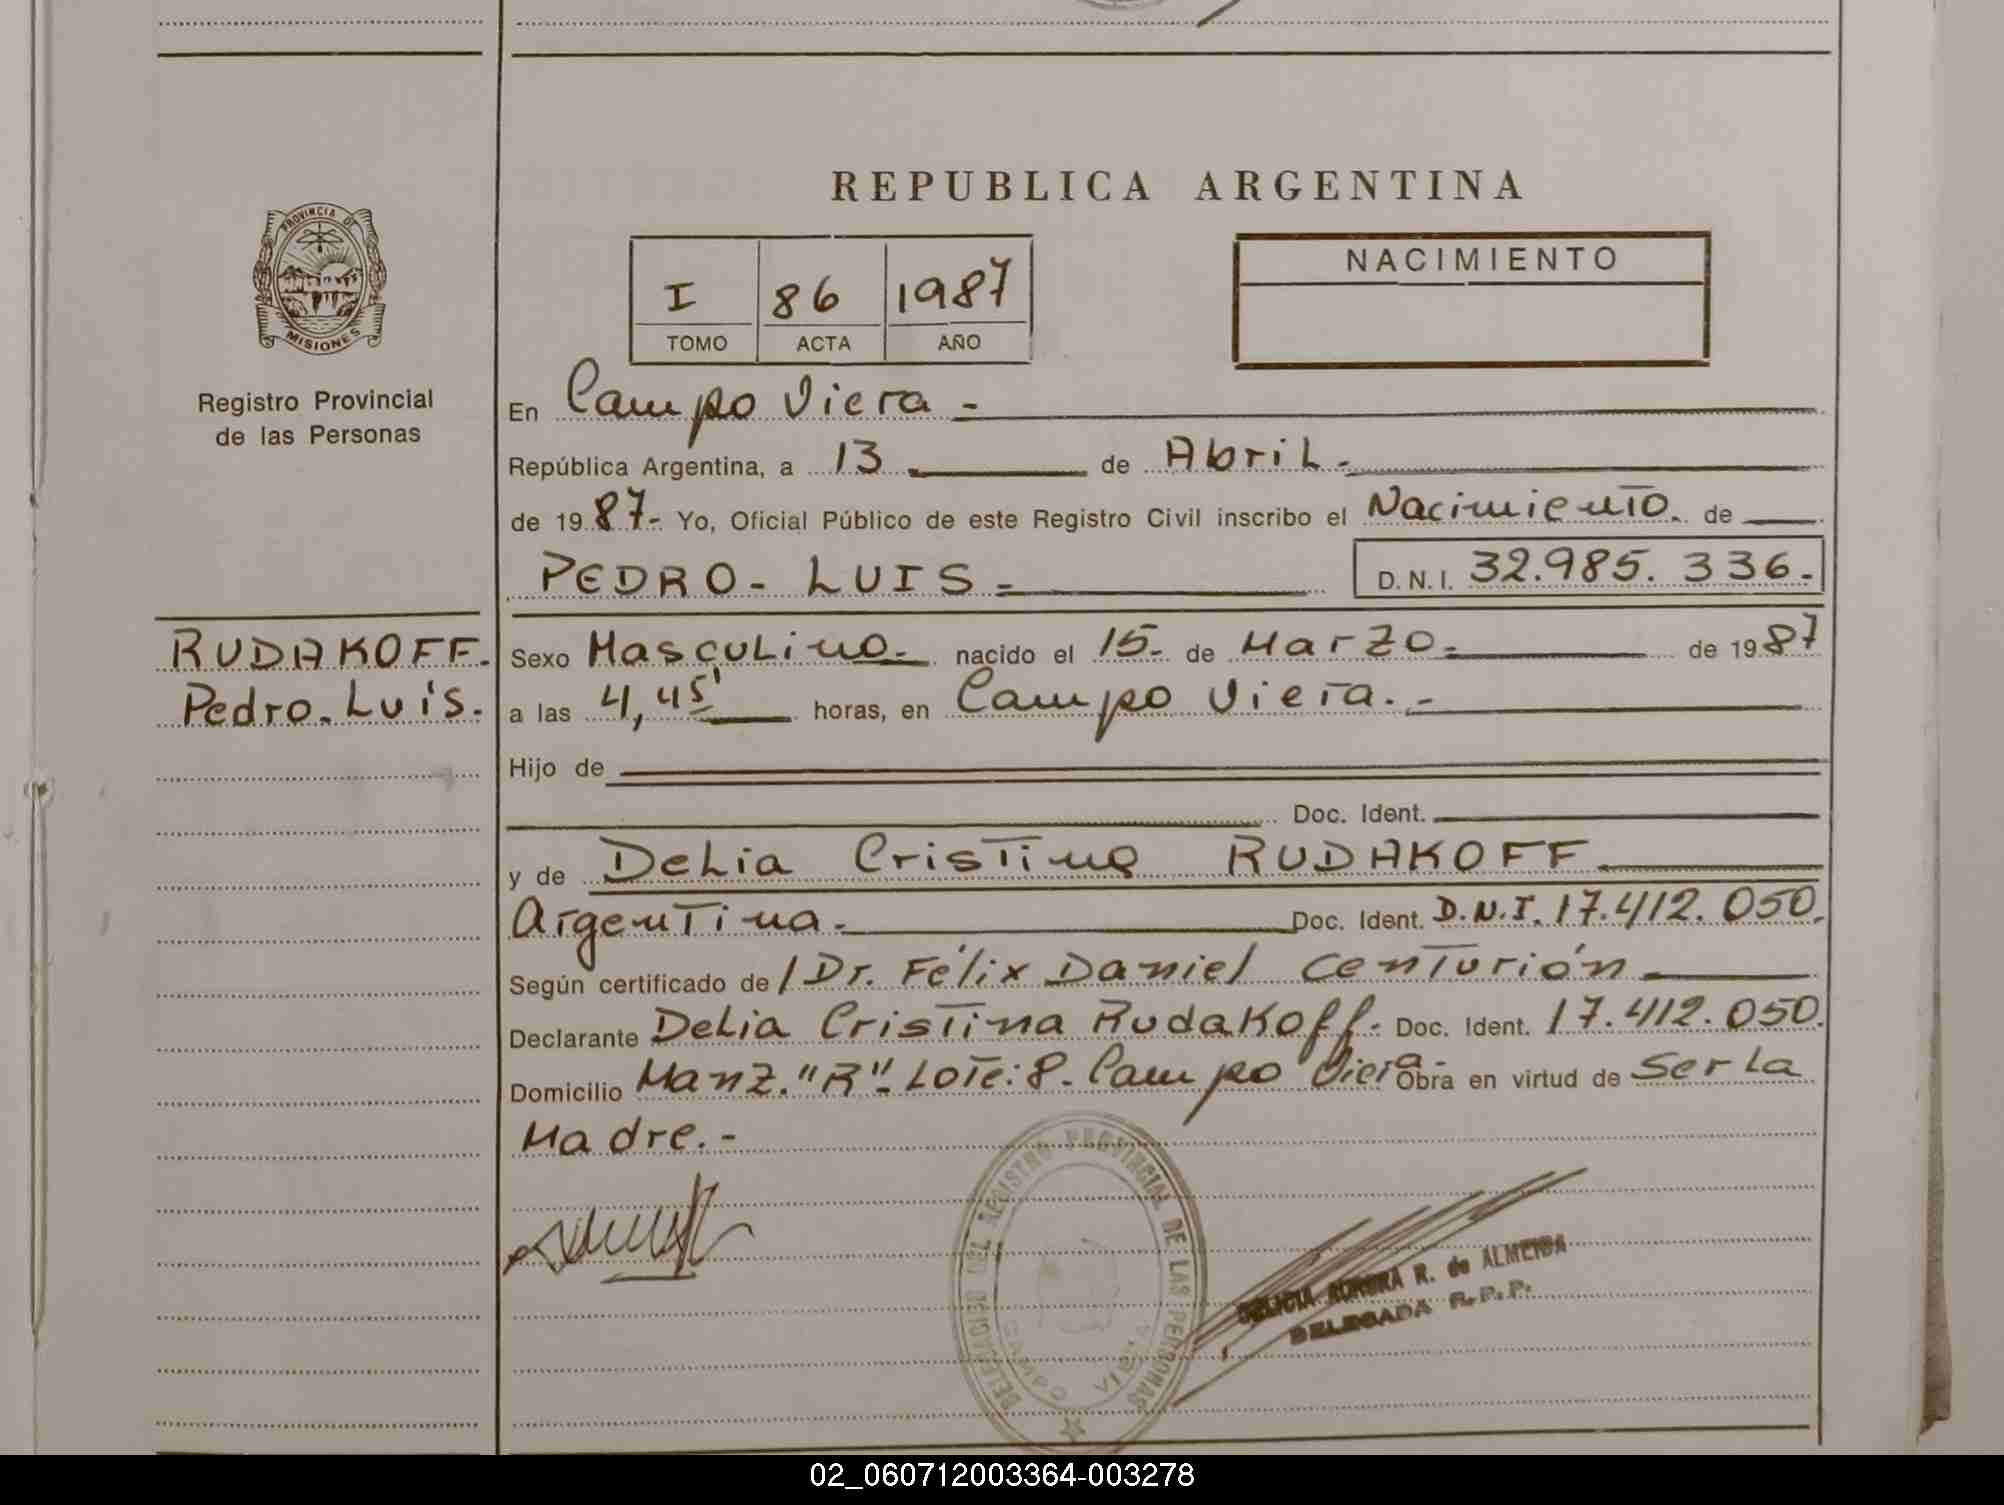 REPUBLICA ARGENTINA
PROVINCIA DE
MISIONES
Registro Provincial
de las Personas
I 86 1987
TOMO ACTA AÑO
NACIMIENTO
En Campo Viera -
República Argentina, a 13 de Abril.-
de 1987.- Yo, Oficial Público de este Registro Civil inscribo el Nacimiento. de
PEDRO - LUIS = D.N.I. 32.985.336.-
RUDAKOFF.
Pedro. Luis.
Sexo Masculino.- nacido el 15.- de Marzo.- de 1987
a las 4,45' horas, en Campo Viera.-
Hijo de
Doc. Ident.
y de Delia Cristina RUDAKOFF
Argentina.- Doc. Ident. D.N.I. 17.412.050.
Según certificado de / Dr. Félix Daniel Centurión
Declarante Delia Cristina Rudakoff.- Doc. Ident. 17.412.050.
Domicilio Manz. "R".- Lote: 8.- Campo Viera.- Obra en virtud de Ser la
Madre.-
DEL REGISTRO PROVINCIAL DE LAS PERSONAS
CAMPO VIERA
DELICIA AURORA R. de ALMEIDA
DELEGADA R.P.P.
02_060712003364-003278